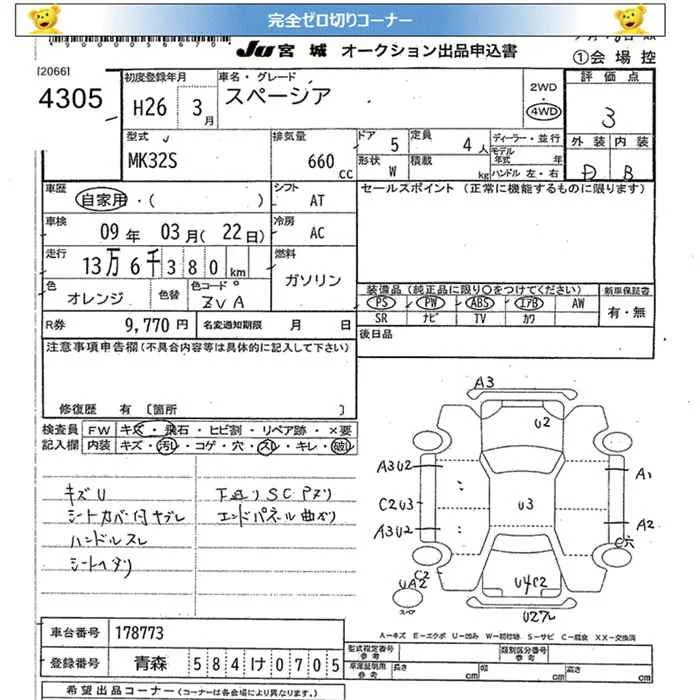 完全ゼロ切りコーナー
JU 宮城 オークション出品申込書
①会場控
[2066]
4305
初度登録年月 H26 3月
車名・グレード スペーシア
2WD・4WD
評価点 3
型式 MK32S
排気量 660 CC
ドア 5
形状 W
定員 4人
積載 kg
ディーラー・並行
モデル年式 年
ハンドル 左・右
外装 内装
D B
車歴 自家用・( )
シフト AT
セールスポイント (正常に機能するものに限ります)
車検 09年 03月(22日)
冷房 AC
走行 13万6千380km
燃料 ガソリン
色 オレンジ 色替 色コードNo ZVA
装備品 (純正品に限り○をつけてください) 新車保証書
PS PW ABS エアB AW 有・無
SR ナビ TV カワ
R券 9,770円 名変通知期限 月 日
後日品
注意事項申告欄(不具合内容等は具体的に記入して下さい)
修復歴 有 〔箇所 〕
検査員 FW キズ・飛石・ヒビ割・リペア跡・×要
記入欄 内装 キズ・汚れ・コゲ・穴・スレ・キレ・破れ
キズU
シートカバー付ヤブレ
ハンドルスレ
シートヘタリ
下廻りSCアリ
エンドパネル曲がり
A3
U2
A3U2 A1
C2U3 U3
A3U2 A2
C穴
C2
UA2 U4C2
スペア
A-キズ E-エクボ U-凹み W-補修跡 S-サビ C-腐食 XX-交換済
車台番号 178773
登録番号 青森 584け0705
型式指定番号 参考 類別区分番号 参考
車庫証明用 参考 長さ cm 幅 cm 高さ cm
希望出品コーナー(コーナーは各会場により異なります。)